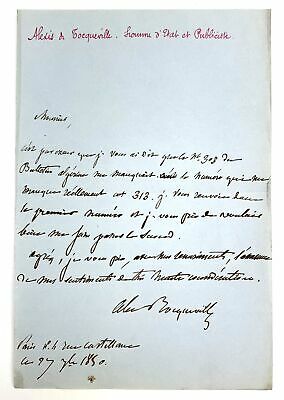 Alexis de Tocqueville. Homme d'Etat et Publiciste
Monsieur,
c'est par erreur que je vous ai dit que le N° 308 du
Bulletin algérien me manquait. le numéro qui me
manque réellement est 313. je vous renvoie donc
le premier numéro et je vous prie de vouloir
bien me faire passer le second.
agréez, je vous prie, avec mes remerciments, l'assurance
de mes sentiments de très haute considération.
Alex Tocqueville
Paris rue Castellane
ce 27 1850.